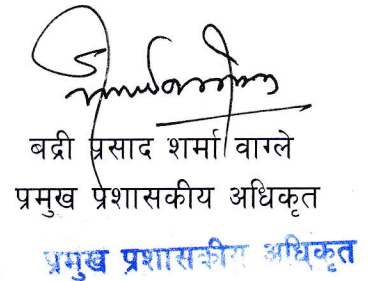 बद्री प्रसाद शर्मा वाग्ले
प्रमुख प्रशासकीय अधिकृत
प्रमुख प्रशासकीय अधिकृत